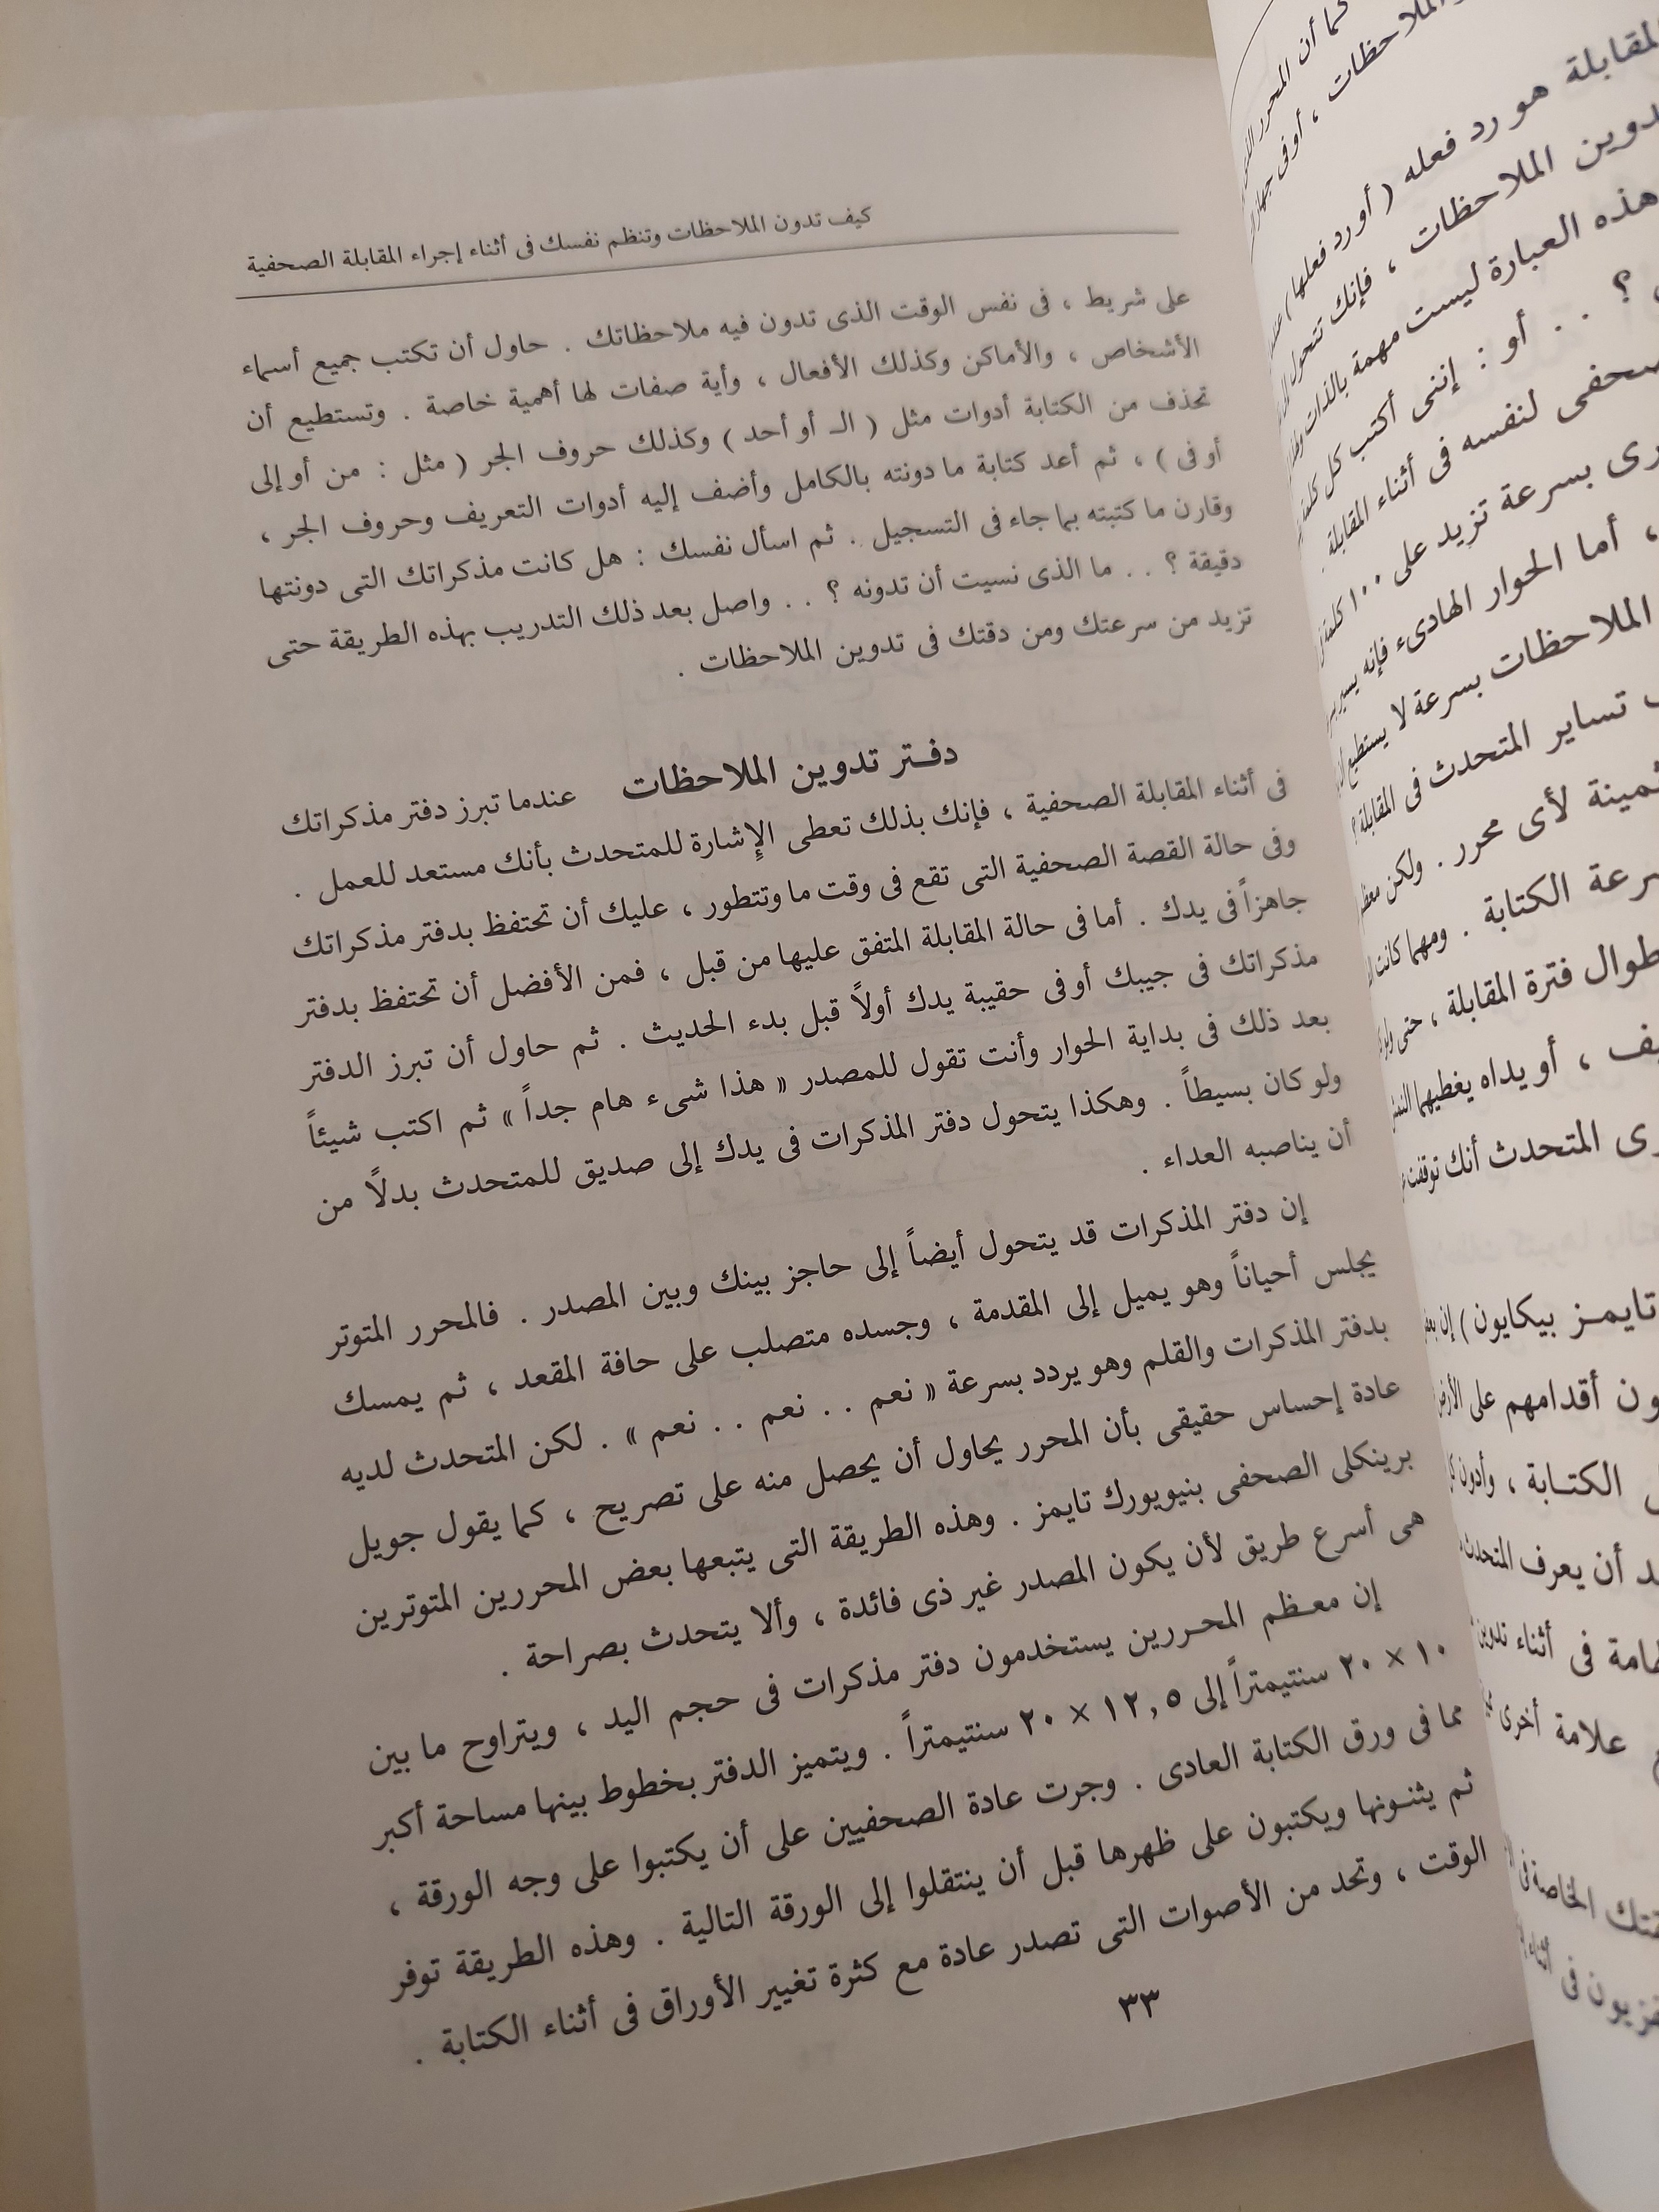 كيف تدون الملاحظات وتنظم نفسك فى أثناء إجراء المقابلة الصحفية
على شريط ، فى نفس الوقت الذى تدون فيه ملاحظاتك . حاول أن تكتب جميع أسماء
الأشخاص ، والأماكن وكذلك الأفعال ، وأية صفات لها أهمية خاصة . وتستطيع أن
تحذف من الكتابة أدوات مثل ( الـ أو أحد ) وكذلك حروف الجر ( مثل : من أو إلى
أو فى ) ، ثم أعد كتابة ما دونته بالكامل وأضف إليه أدوات التعريف وحروف الجر ،
وقارن ما كتبته بما جاء فى التسجيل . ثم اسأل نفسك : هل كانت مذكراتك التى دونتها
دقيقة ؟ . . ما الذى نسيت أن تدونه ؟ . . واصل بعد ذلك التدريب بهذه الطريقة حتى
تزيد من سرعتك ومن دقتك فى تدوين الملاحظات .
دفـتر تدوين الملاحظات عندما تبرز دفتر مذكراتك
فى أثناء المقابلة الصحفية ، فإنك بذلك تعطى الإشارة للمتحدث بأنك مستعد للعمل .
وفى حالة القصة الصحفية التى تقع فى وقت ما وتتطور ، عليك أن تحتفظ بدفتر مذكراتك
جاهزاً فى يدك . أما فى حالة المقابلة المتفق عليها من قبل ، فمن الأفضل أن تحتفظ بدفتر
مذكراتك فى جيبك أو فى حقيبة يدك أولاً قبل بدء الحديث . ثم حاول أن تبرز الدفتر
بعد ذلك فى بداية الحوار وأنت تقول للمصدر « هذا شىء هام جداً » ثم اكتب شيئاً
ولو كان بسيطاً . وهكذا يتحول دفتر المذكرات فى يدك إلى صديق للمتحدث بدلًا من
أن يناصبه العداء .
إن دفتر المذكرات قد يتحول أيضاً إلى حاجز بينك وبين المصدر . فالمحرر المتوتر
يجلس أحياناً وهو يميل إلى المقدمة ، وجسده متصلب على حافة المقعد ، ثم يمسك
بدفتر المذكرات والقلم وهو يردد بسرعة « نعم . . نعم . . نعم » . لكن المتحدث لديه
عادة إحساس حقيقى بأن المحرر يحاول أن يحصل منه على تصريح ، كما يقول جويل
برينكلى الصحفى بنيويورك تايمز . وهذه الطريقة التى يتبعها بعض المحررين المتوترين
هى أسرع طريق لأن يكون المصدر غير ذى فائدة ، وألا يتحدث بصراحة .
إن معـظم المحـررين يستخدمون دفتر مذكرات فى حجم اليد ، ويتراوح ما بين
١٠ × ٢٠ سنتيمتراً إلى ١٢,٥ × ٢٠ سنتيمتراً . ويتميز الدفتر بخطوط بينها مساحة أكبر
مما فى ورق الكتابة العادى . وجرت عادة الصحفيين على أن يكتبوا على وجه الورقة ،
ثم يثنـونها ويكتبون على ظهرها قبل أن ينتقلوا إلى الورقة التالية . وهذه الطريقة توفر
الوقت ، وتحد من الأصوات التى تصدر عادة مع كثرة تغيير الأوراق فى أثناء الكتابة .
٣٣
كما أن المحرر
الملاحظات ، أو فى
المقابلة هو رد فعله ( أو رد فعلها )
تدوين الملاحظات ، فإنك تتحول
هذه العبارة ليست مهمة بالذات
؟ . . أو : إننى أكتب كل كلمة
لنفسه فى أثناء المقابلة
بسرعة تزيد على ١٠٠ كلمة
، أما الحوار الهادىء فإنه يسير
الملاحظات بسرعة لا يستطيع
تساير المتحدث فى المقابلة ؟
ثمينة لأى محرر . ولكن
سرعة الكتابة . ومهما كانت
طوال فترة المقابلة ، حتى
، أو يداه يغطيهما
المتحدث أنك توقفت
تايمـز بيكايون ) إن
أقدامهم على الأرض
الكتـابة ، وأدون
أن يعرف المتحدث
فى أثناء تدوين
علامة أخرى
الخاصة فى
فى أثناء